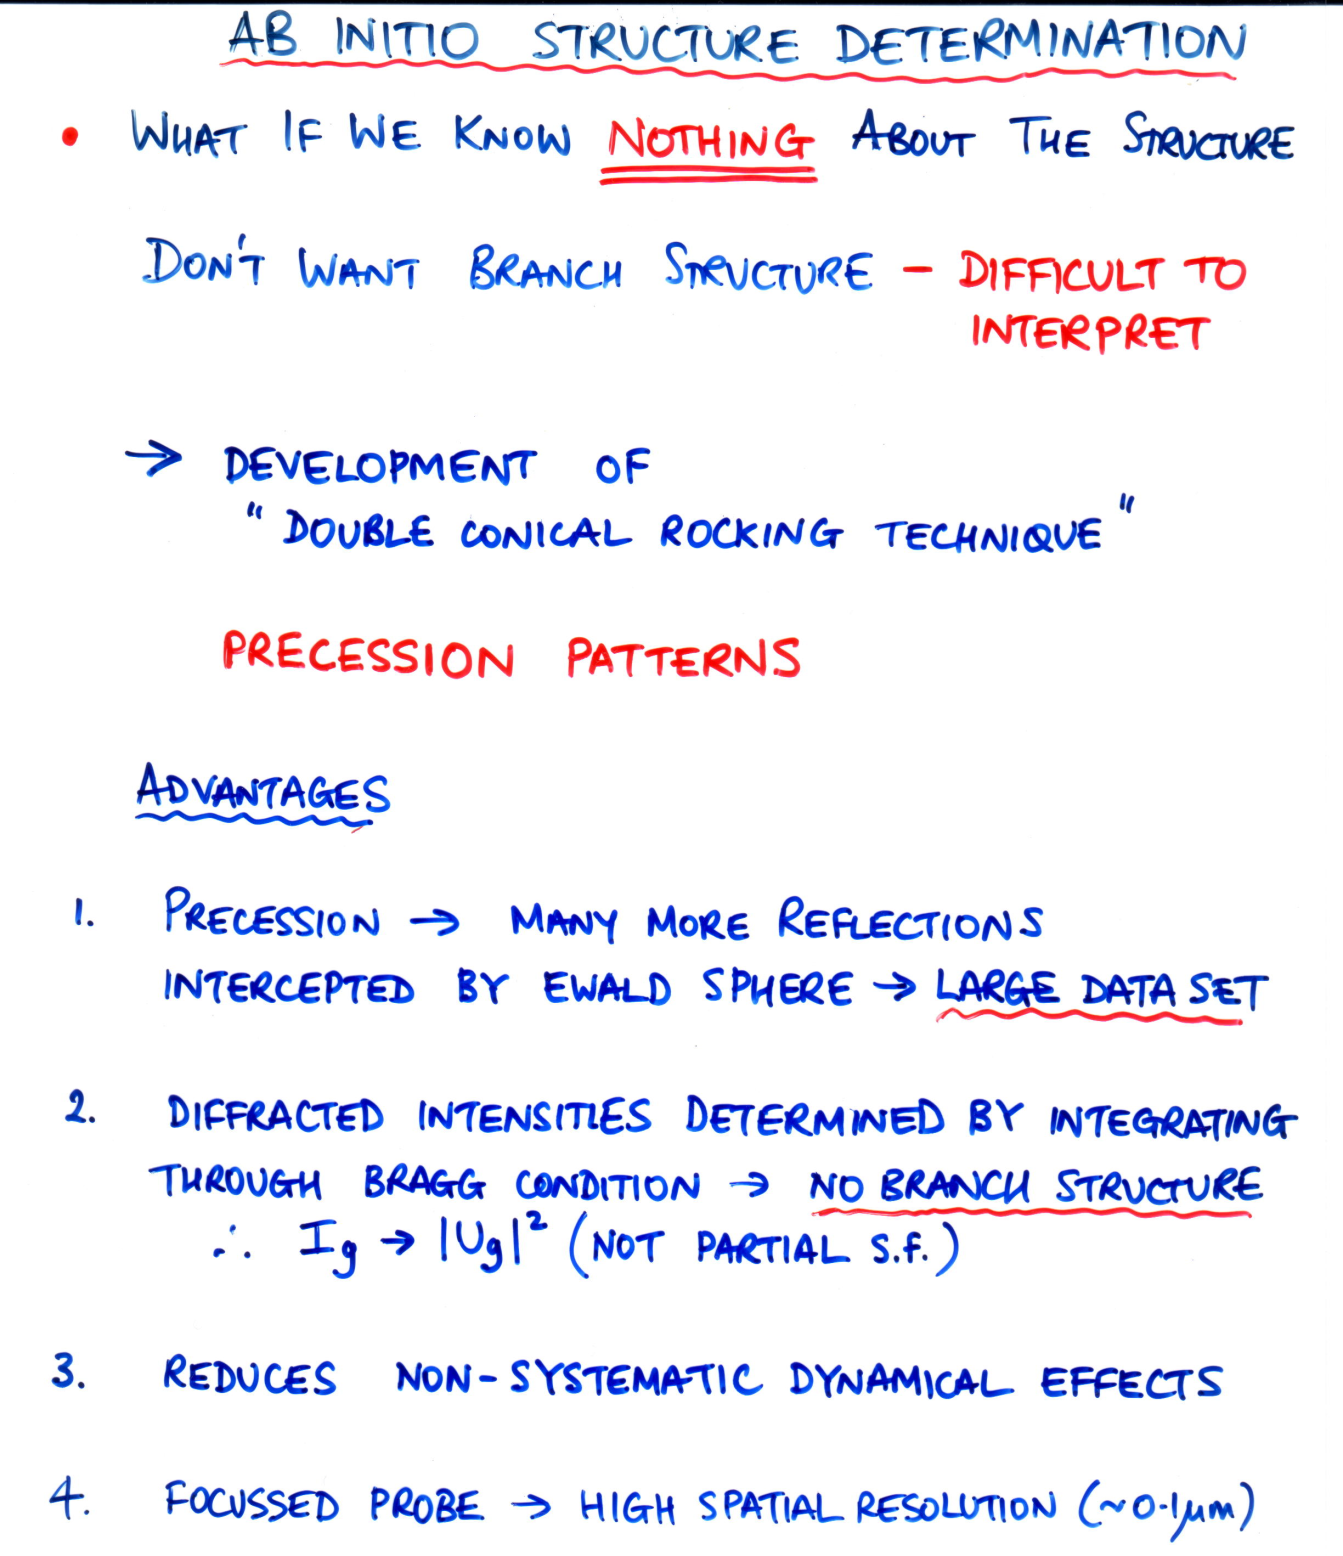 AB INITIO STRUCTURE DETERMINATION
• WHAT IF WE KNOW NOTHING ABOUT THE STRUCTURE
DON'T WANT BRANCH STRUCTURE - DIFFICULT TO
INTERPRET
→ DEVELOPMENT OF
"DOUBLE CONICAL ROCKING TECHNIQUE"
PRECESSION PATTERNS
ADVANTAGES
1. PRECESSION → MANY MORE REFLECTIONS
INTERCEPTED BY EWALD SPHERE → LARGE DATA SET
2. DIFFRACTED INTENSITIES DETERMINED BY INTEGRATING
THROUGH BRAGG CONDITION → NO BRANCH STRUCTURE
∴ Ig → |Ug|² (NOT PARTIAL S.F.)
3. REDUCES NON-SYSTEMATIC DYNAMICAL EFFECTS
4. FOCUSSED PROBE → HIGH SPATIAL RESOLUTION (~0·1μm)